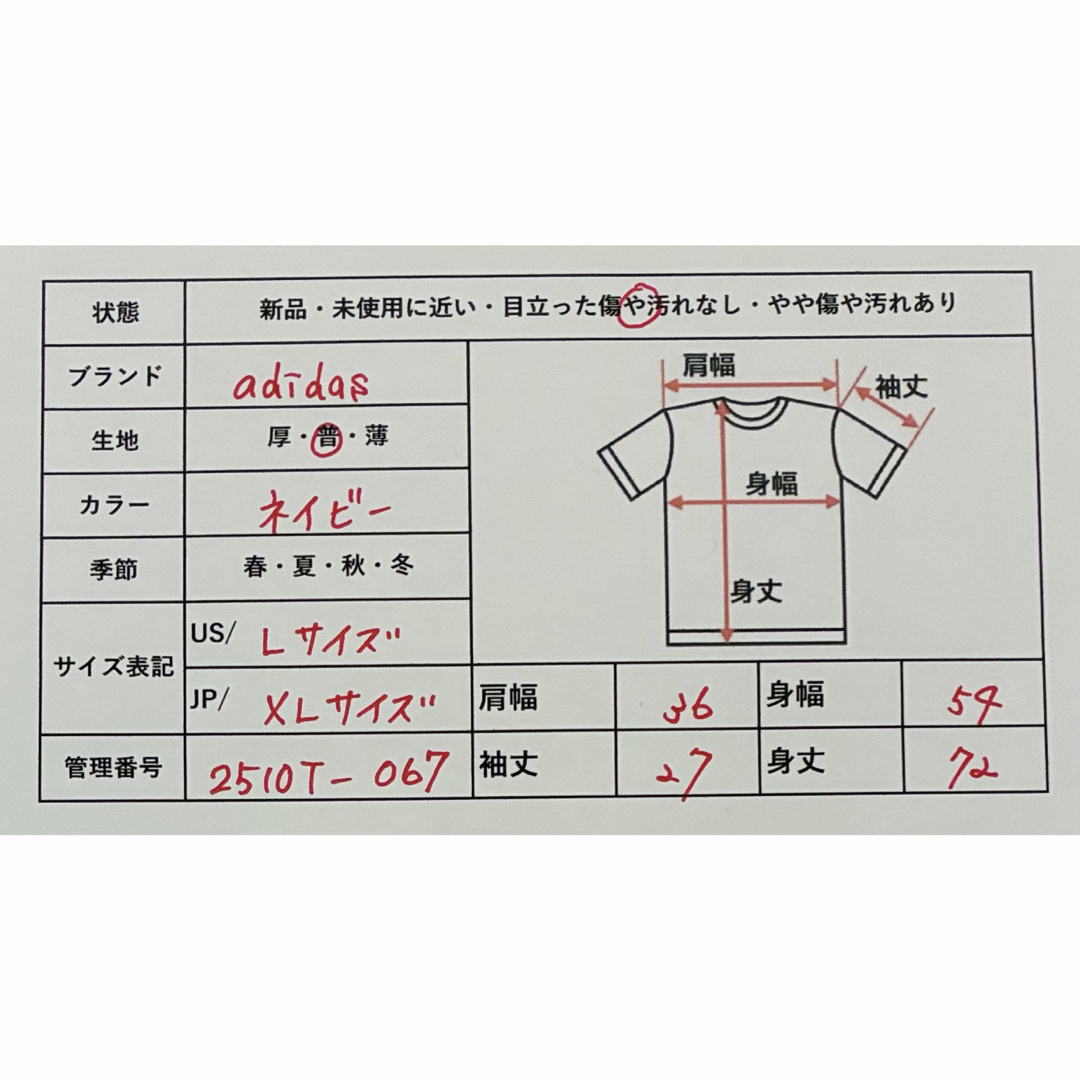 状態 新品・未使用に近い・目立った傷や汚れなし・やや傷や汚れあり
ブランド adidas
生地 厚・普・薄
カラー ネイビー
季節 春・夏・秋・冬
サイズ表記
US/ Lサイズ
JP/ XLサイズ
管理番号 2510T-067
肩幅
袖丈
身幅
身丈
肩幅 36 身幅 54
袖丈 27 身丈 72